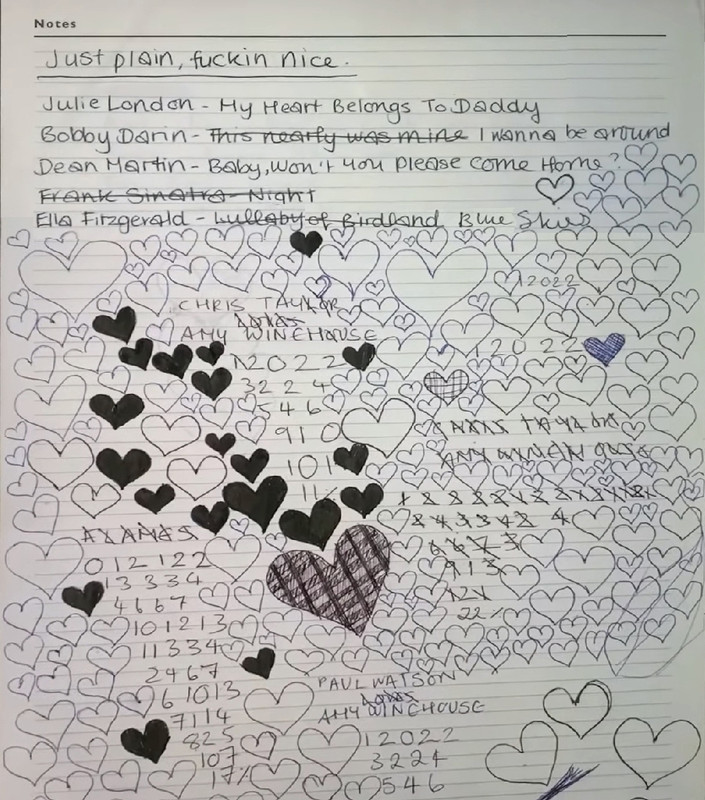 Notes
Just plain, fuckin nice.
Julie London - My Heart Belongs To Daddy
Bobby Darin - This nearly was mine I wanna be around
Dean Martin - Baby, won't you please come Home?
Frank Sinatra - Night
Ella Fitzgerald - Lullaby of Birdland Blue Skies
12022
CHRIS TAYLOR
LOVES
AMY WINEHOUSE
12022
12022
3224
546
910
101
11%
AXAMAS
012122
13334
4667
101213
11334
2467
61013
7114
825
107
17%
843342 4
6673
913
121
22%
PAUL WATSON
LOVES
AMY WINEHOUSE
12022
3224
546